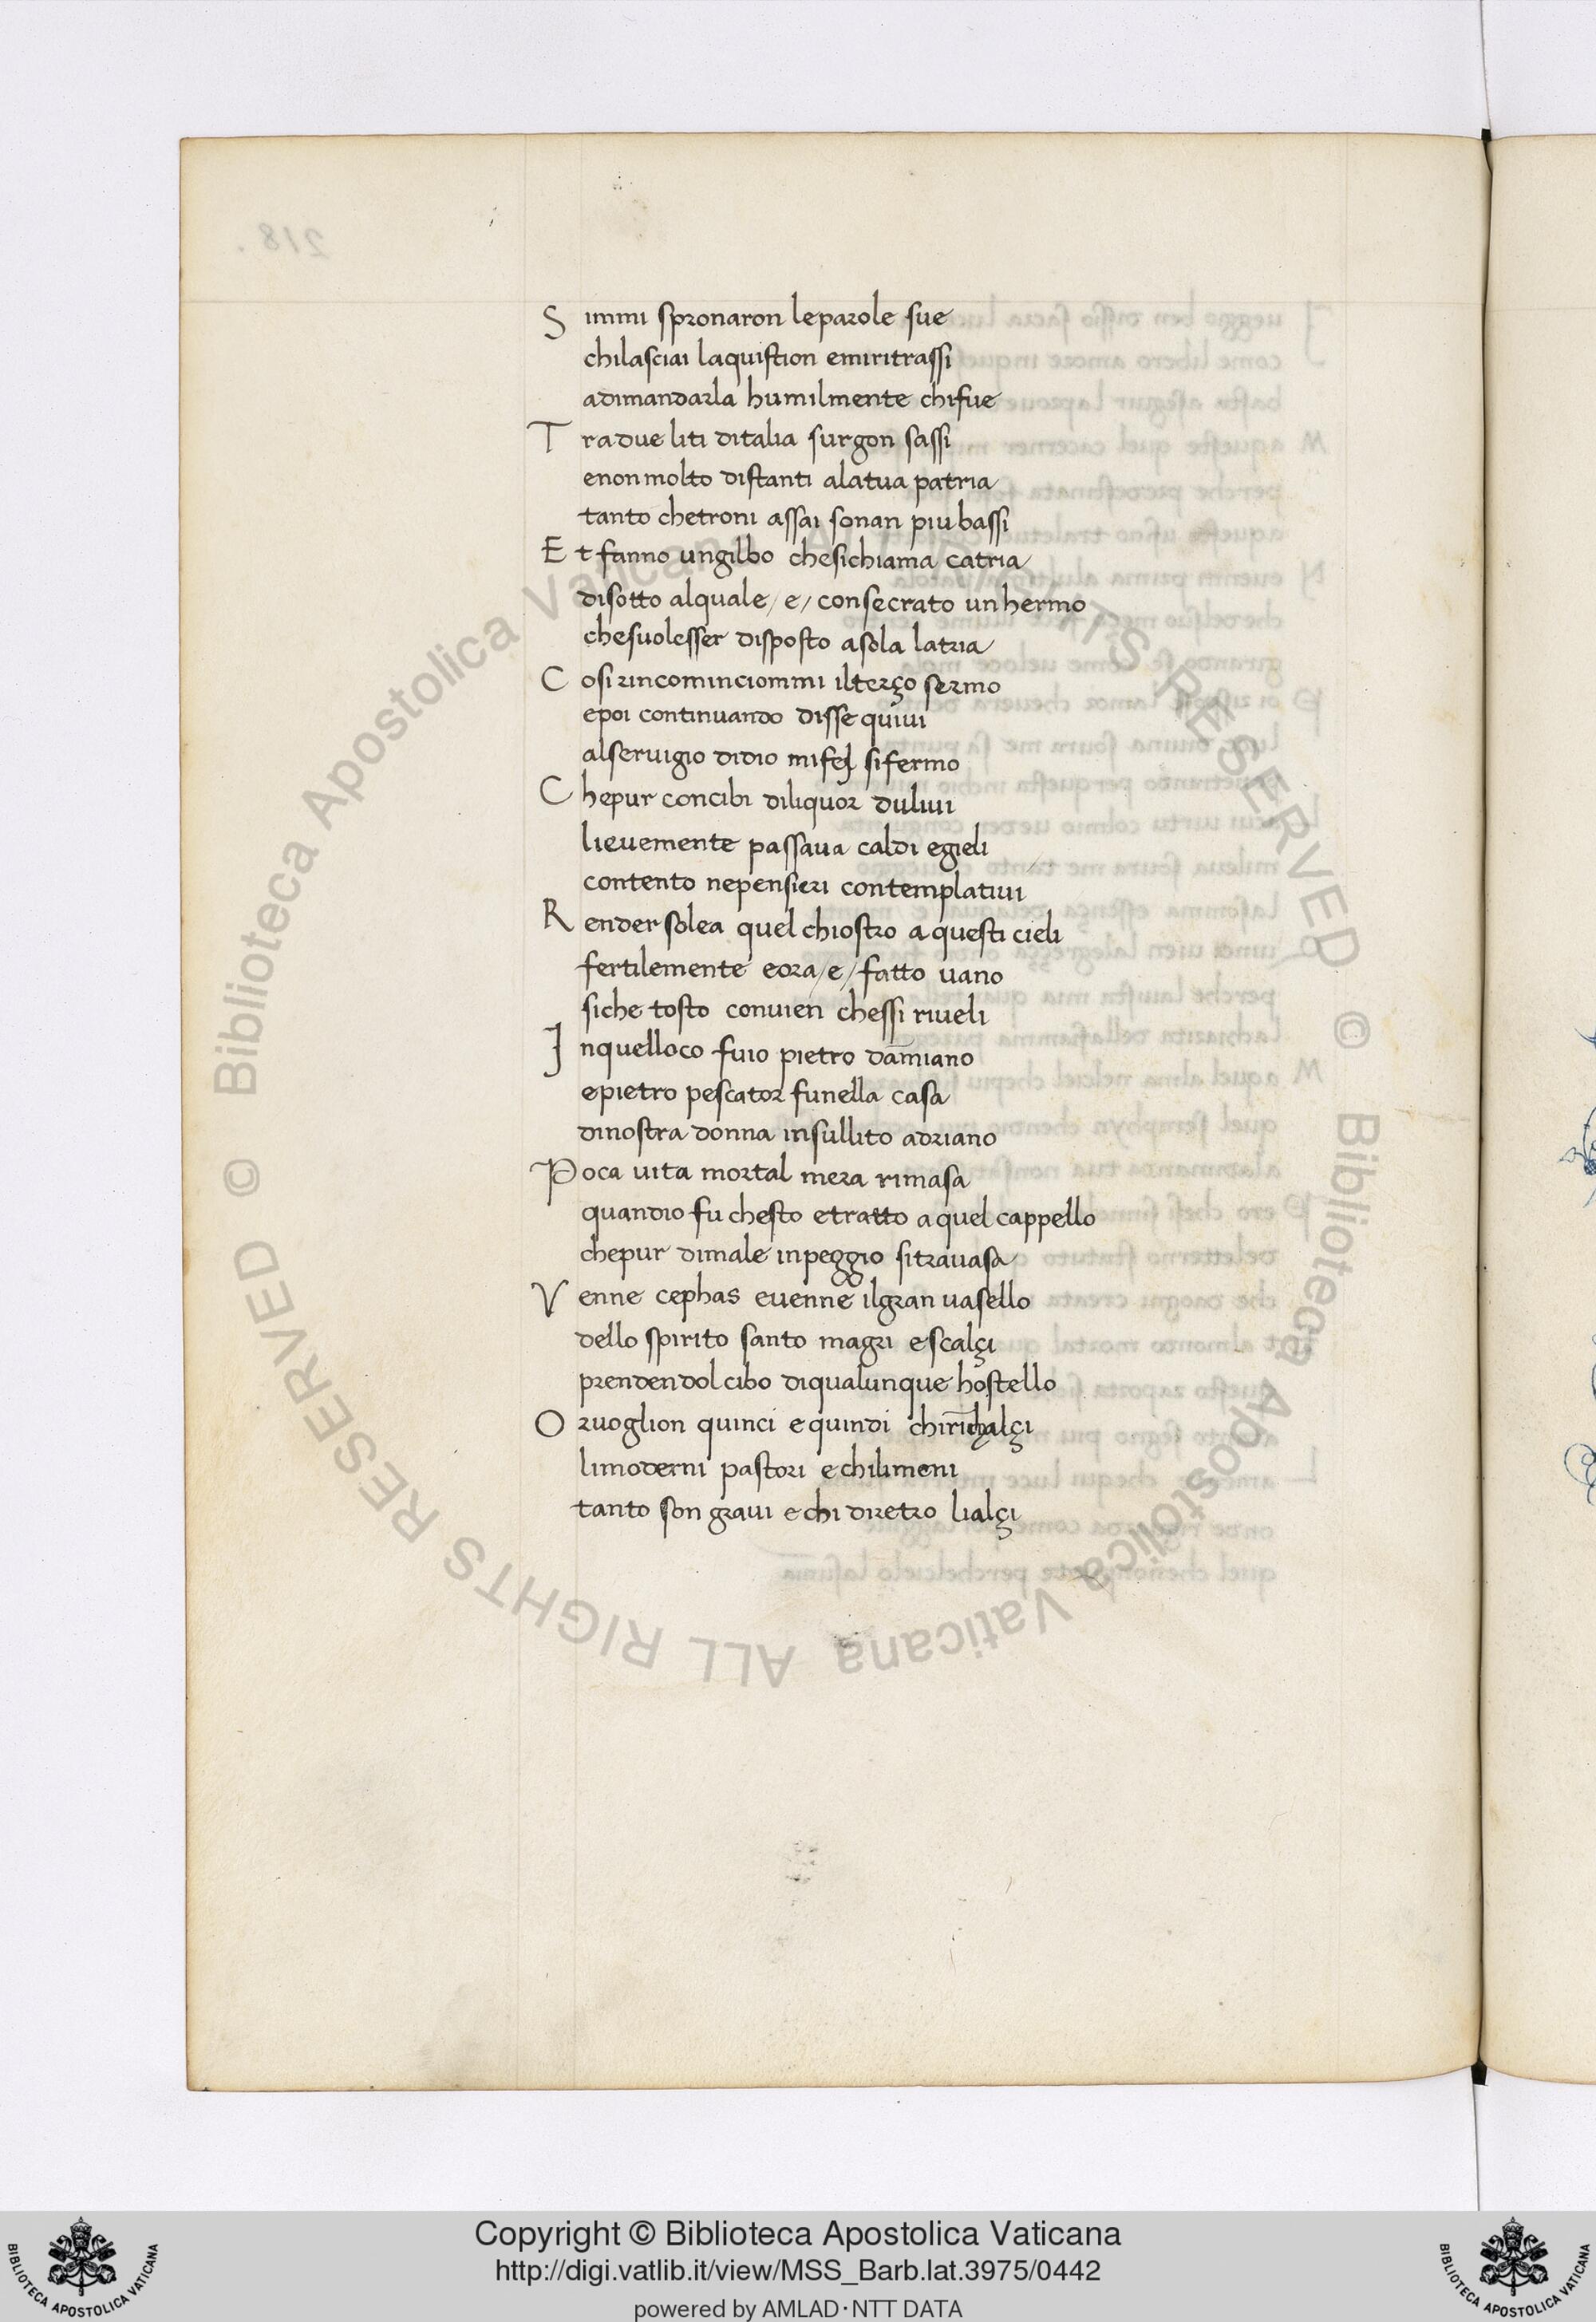 S immi spronaron leparole sue
chilasciai laquistion emiritrassi
adimandarla humilmente chifue
T radue liti ditalia surgon sassi
enonmolto distanti alatua patria
tanto chetroni assai sonan piu bassi
E t fanno ungilbo chesichiama catria
disotto alquale/ e/ consecrato unhermo
chesuolesser disposto asola latria
C osi rincominciommi ilterço sermo
epoi continuando disse quiui
alseruigio didio mi sifermo
C hepur concibi diliquor duliui
lieuemente passaua caldi egieli
contento nepensieri contemplatiui
R ender solea quel chiostro aquesti cieli
fertilemente eora/e/ fatto uano
siche tosto conuien chessi riueli
I nquelloco fuio pietro dam̄iano
epietro pescator funella casa
dinostra donna insullito adriano
P oca uita mortal mera rimasa
quandio fu chesto etratto aquel cappello
chepur dimale inpeggio sitrauasa
V enne cephas euenne ilgran uasello
dello spirito santo magri escalçi
prendendol cibo diqualunque hostello
O ruoglion quinci equindi
limoderni pastori echilimeni
tanto son graui echi diretro lialçi
218.
© Biblioteca Apostolica Vaticana ALL RIGHTS RESERVED
© Biblioteca Apostolica Vaticana ALL RIGHTS RESERVED
Copyright © Biblioteca Apostolica Vaticana
http://digi.vatlib.it/view/MSS_Barb.lat.3975/0442
powered by AMLAD·NTT DATA
BIBLIOTECA APOSTOLICA VATICANA
BIBLIOTECA APOSTOLICA VATICANA